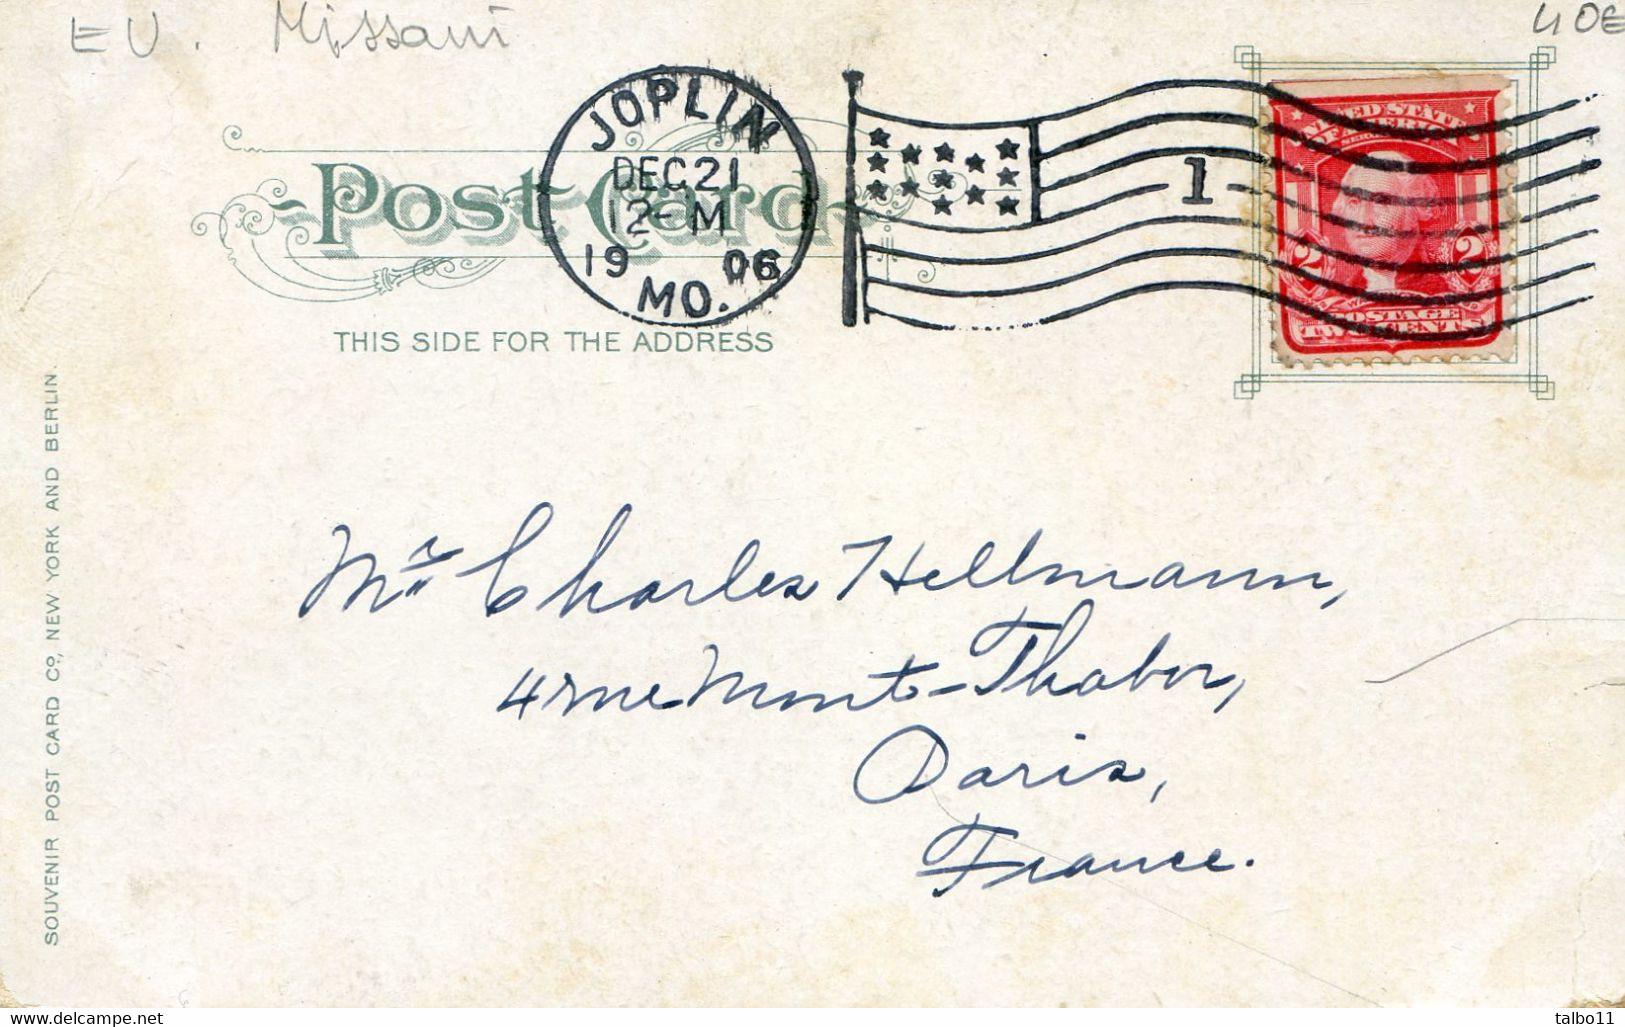 EU. Missouri
40€
JOPLIN
DEC 21
12-M
1906
MO.
1
UNITED STATES
OF AMERICA
2 2
POSTAGE
TWO CENTS
Post Card
THIS SIDE FOR THE ADDRESS
SOUVENIR POST CARD CO., NEW YORK AND BERLIN.
Mr. Charles Hellmann,
4 rue Mont-Thabor,
Paris,
France.
www.delcampe.net
talbo11